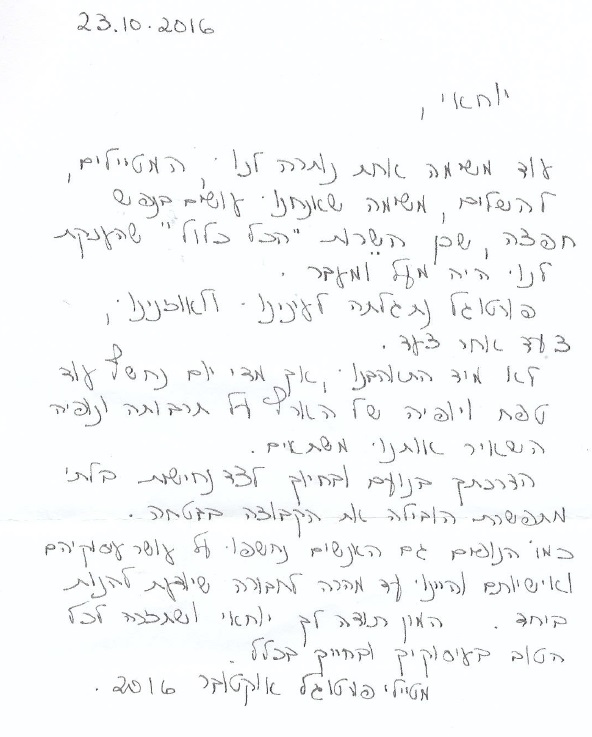 23.10.2016
יוחאי,
עוד משימה אחת נותרה לנו, המטיילים,
להשלים, משימה שאנחנו עושים בנפש
חפצה, שכן השרות "הכל כלול" שהענקת
לנו היה מעל ומעבר.
פורטוגל נתגלתה לעינינו ולאוזנינו,
צעד אחר צעד.
לא מיד התאהבנו, אך מדי יום נחשף עוד
טפח ויופיה של הארץ על תרבותה ונופיה
השאיר אותנו משתאים.
הדרכתך בנועם ובחיוך לצד נחישות בלתי
מתפשרת הובילה את הקבוצה בבטחה.
כמו הנופים גם האנשים נחשפו על עושר עיסוקיהם
ואישיותם והיינו עד מהרה לחבורה שיודעת להנות
ביחד. המון תודה לך יוחאי ושתזכה לכל
הטוב בעיסוקיך ובחייך בכלל.
מטיילי פורטוגל אוקטובר 2016.